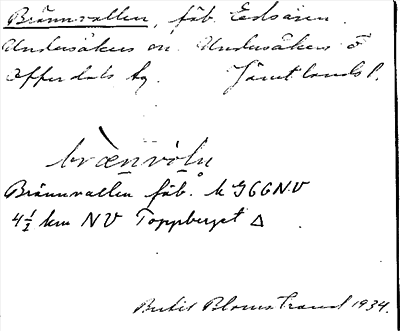 Brännvallen, fäb. Edsåsen.
Undersåkers sn. Undersåkers o
Offerdals tg. Jämtlands l.
brænvóln
Brännvallen fäb. k JGGNV
4½ km NV Toppberget △
Bertil Blomstrand 1934.